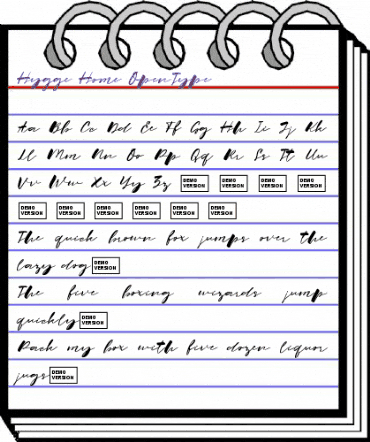 Hygge Home OpenType
Aa Bb Cc Dd Ee Ff Gg Hh Ii Jj Kk
Ll Mm Nn Oo Pp Qq Rr Ss Tt Uu
Vv Ww Xx Yy Zz DEMO VERSION DEMO VERSION DEMO VERSION DEMO VERSION
DEMO VERSION DEMO VERSION DEMO VERSION DEMO VERSION DEMO VERSION DEMO VERSION
The quick brown fox jumps over the
lazy dog DEMO VERSION
The five boxing wizards jump
quickly DEMO VERSION
Pack my box with five dozen liquor
jugs DEMO VERSION